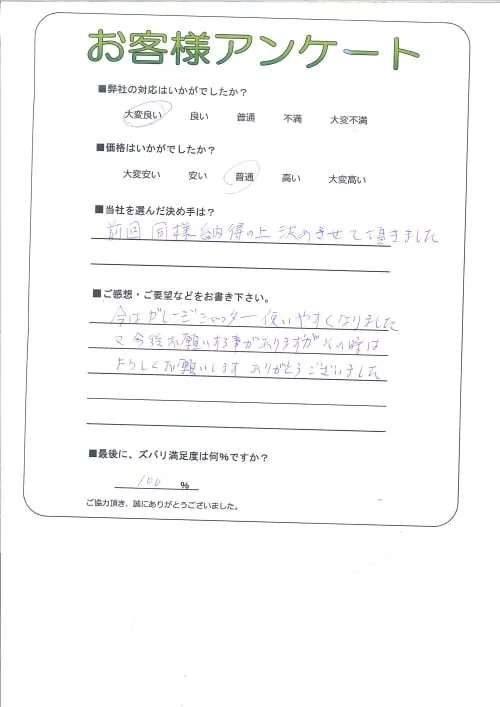 お客様アンケート
■弊社の対応はいかがでしたか?
大変良い 良い 普通 不満 大変不満
■価格はいかがでしたか?
大変安い 安い 普通 高い 大変高い
■当社を選んだ決め手は?
前回同様納得の上決めさせて頂きました
■ご感想・ご要望などをお書き下さい。
今はガレージシャッター使いやすくなりました
又今後お願いする事がありますがその時は
よろしくお願いします ありがとうございました
■最後に、ズバリ満足度は何%ですか?
100 %
ご協力頂き、誠にありがとうございました。